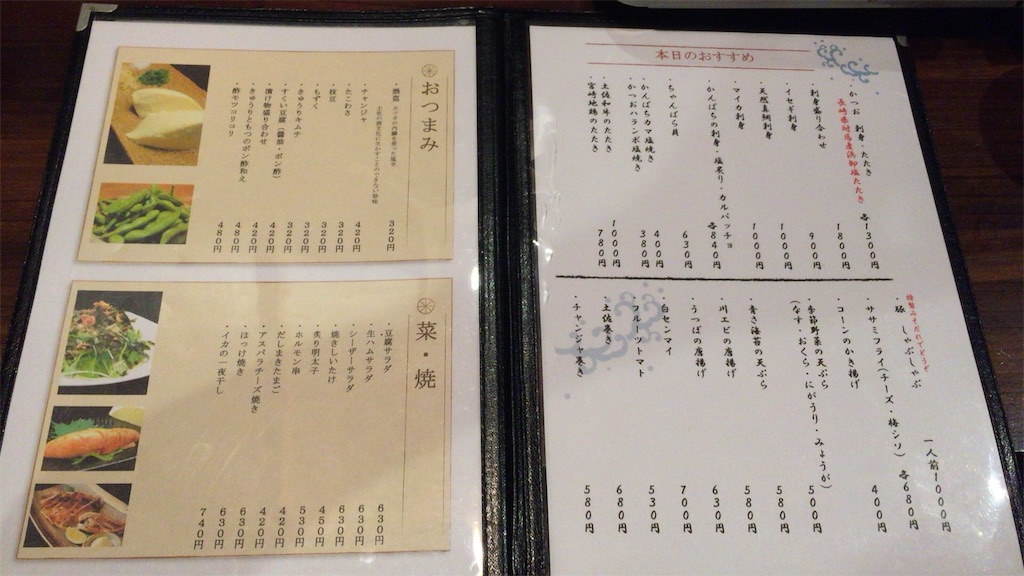 おつまみ
・酒盗 カツオの内臓を使った塩辛 320円
土佐の酒文化に欠かすことのできない珍味
・チャンジャ 420円
・たこわさ 320円
・枝豆 320円
・もずく 320円
・きゅうりキムチ 320円
・すくい豆腐(醤油・ポン酢) 320円
・漬け物盛り合わせ 420円
・きゅうりともつのポン酢和え 480円
・酢モツコリコリ 480円
菜・焼
・豆腐サラダ 630円
・生ハムサラダ 630円
・シーザーサラダ 630円
・焼きしいたけ 630円
・炙り明太子 450円
・ホルモン串 530円
・だしまきたまご 420円
・アスパラチーズ焼き 420円
・ほっけ焼き 630円
・イカの一夜干し 740円
本日のおすすめ
・かつお 刺身・たたき 各1300円
長崎県対馬産浜御塩たたき 1800円
・刺身盛り合わせ 900円
・イセギ刺身 1000円
・天然真鯛刺身 1000円
・マイカ刺身
・かんぱちの刺身・塩炙り・カルパッチョ 各840円
・ちゃんばら貝 630円
・かんぱちカマ塩焼き 400円
・かつおハランボ塩焼き 380円
・土佐和牛のたたき 1000円
・宮崎地鶏のたたき 780円
特製みそだれでどうぞ
・豚 しゃぶしゃぶ 一人前1000円
・ササミフライ(チーズ・梅シソ) 各680円
・コーンのかき揚げ 400円
・季節野菜の天ぷら 500円
(なす・おくら・にがうり・みょうが)
・青さ海苔の天ぷら 580円
・川エビの唐揚げ 580円
・うつぼの唐揚げ 630円
・白センマイ 700円
・フルーツトマト 530円
・土佐巻き 680円
・チャンジャ巻き 580円